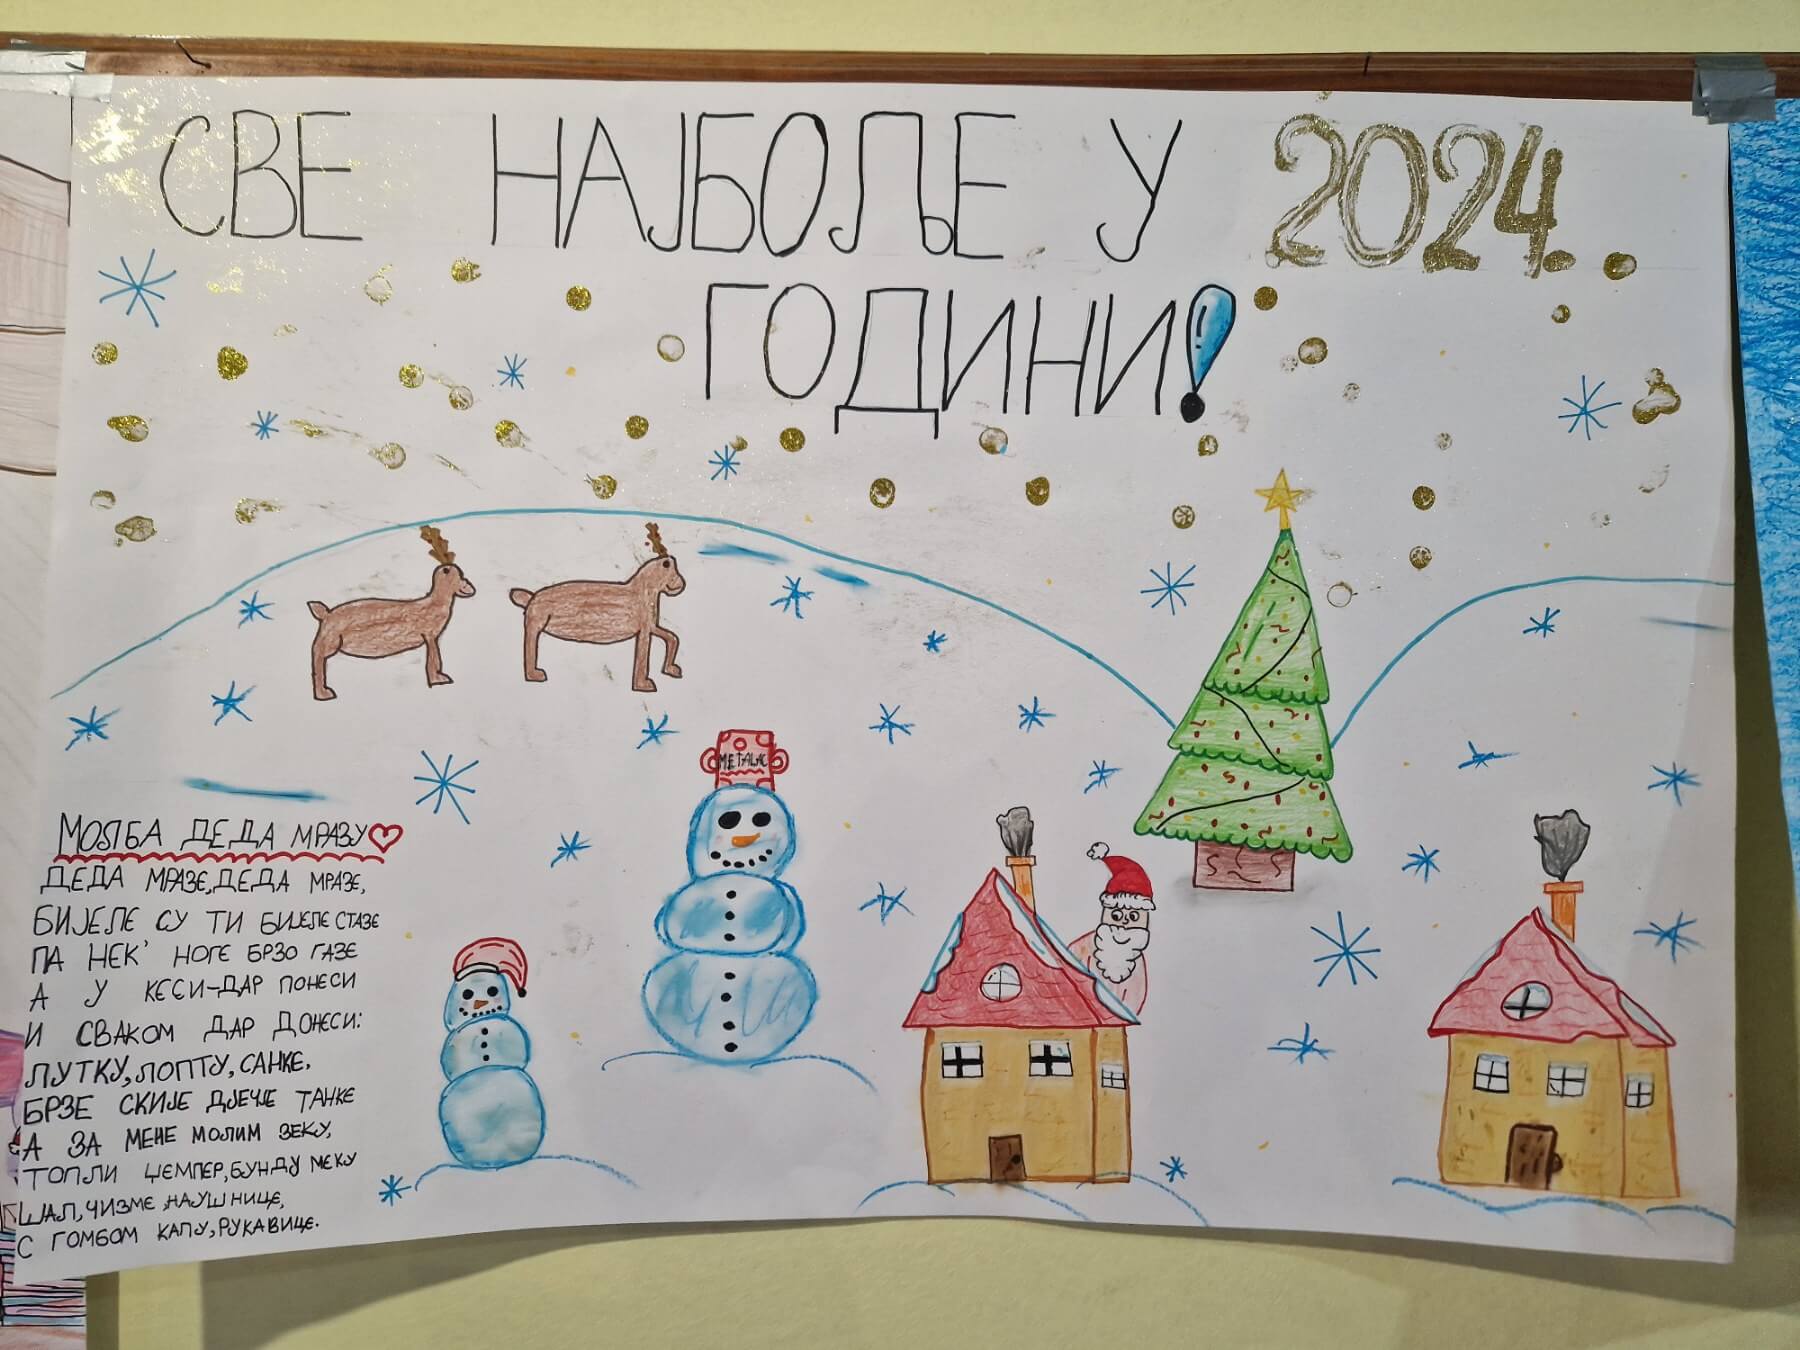 СВЕ НАЈБОЉЕ У 2024.
ГОДИНИ!
METALAC
МОЛБА ДЕДА МРАЗУ
ДЕДА МРАЗЕ, ДЕДА МРАЗЕ,
БИЈЕЛЕ СУ ТИ БИЈЕЛЕ СТАЗЕ
ПА НЕК' НОГЕ БРЗО ГАЗЕ
А У КЕСИ-ДАР ПОНЕСИ
И СВАКОМ ДАР ДОНЕСИ:
ЛУТКУ, ЛОПТУ, САНКЕ,
БРЗЕ СКИЈЕ ДЈЕЧЈЕ ТАНКЕ
А ЗА МЕНЕ МОЛИМ ЗЕКУ,
ТОПЛИ ЏЕМПЕР, БУНДУ МЕКУ
ШАЛ, ЧИЗМЕ, НАУШНИЦЕ,
С ГОМБОМ КАПУ, РУКАВИЦЕ.